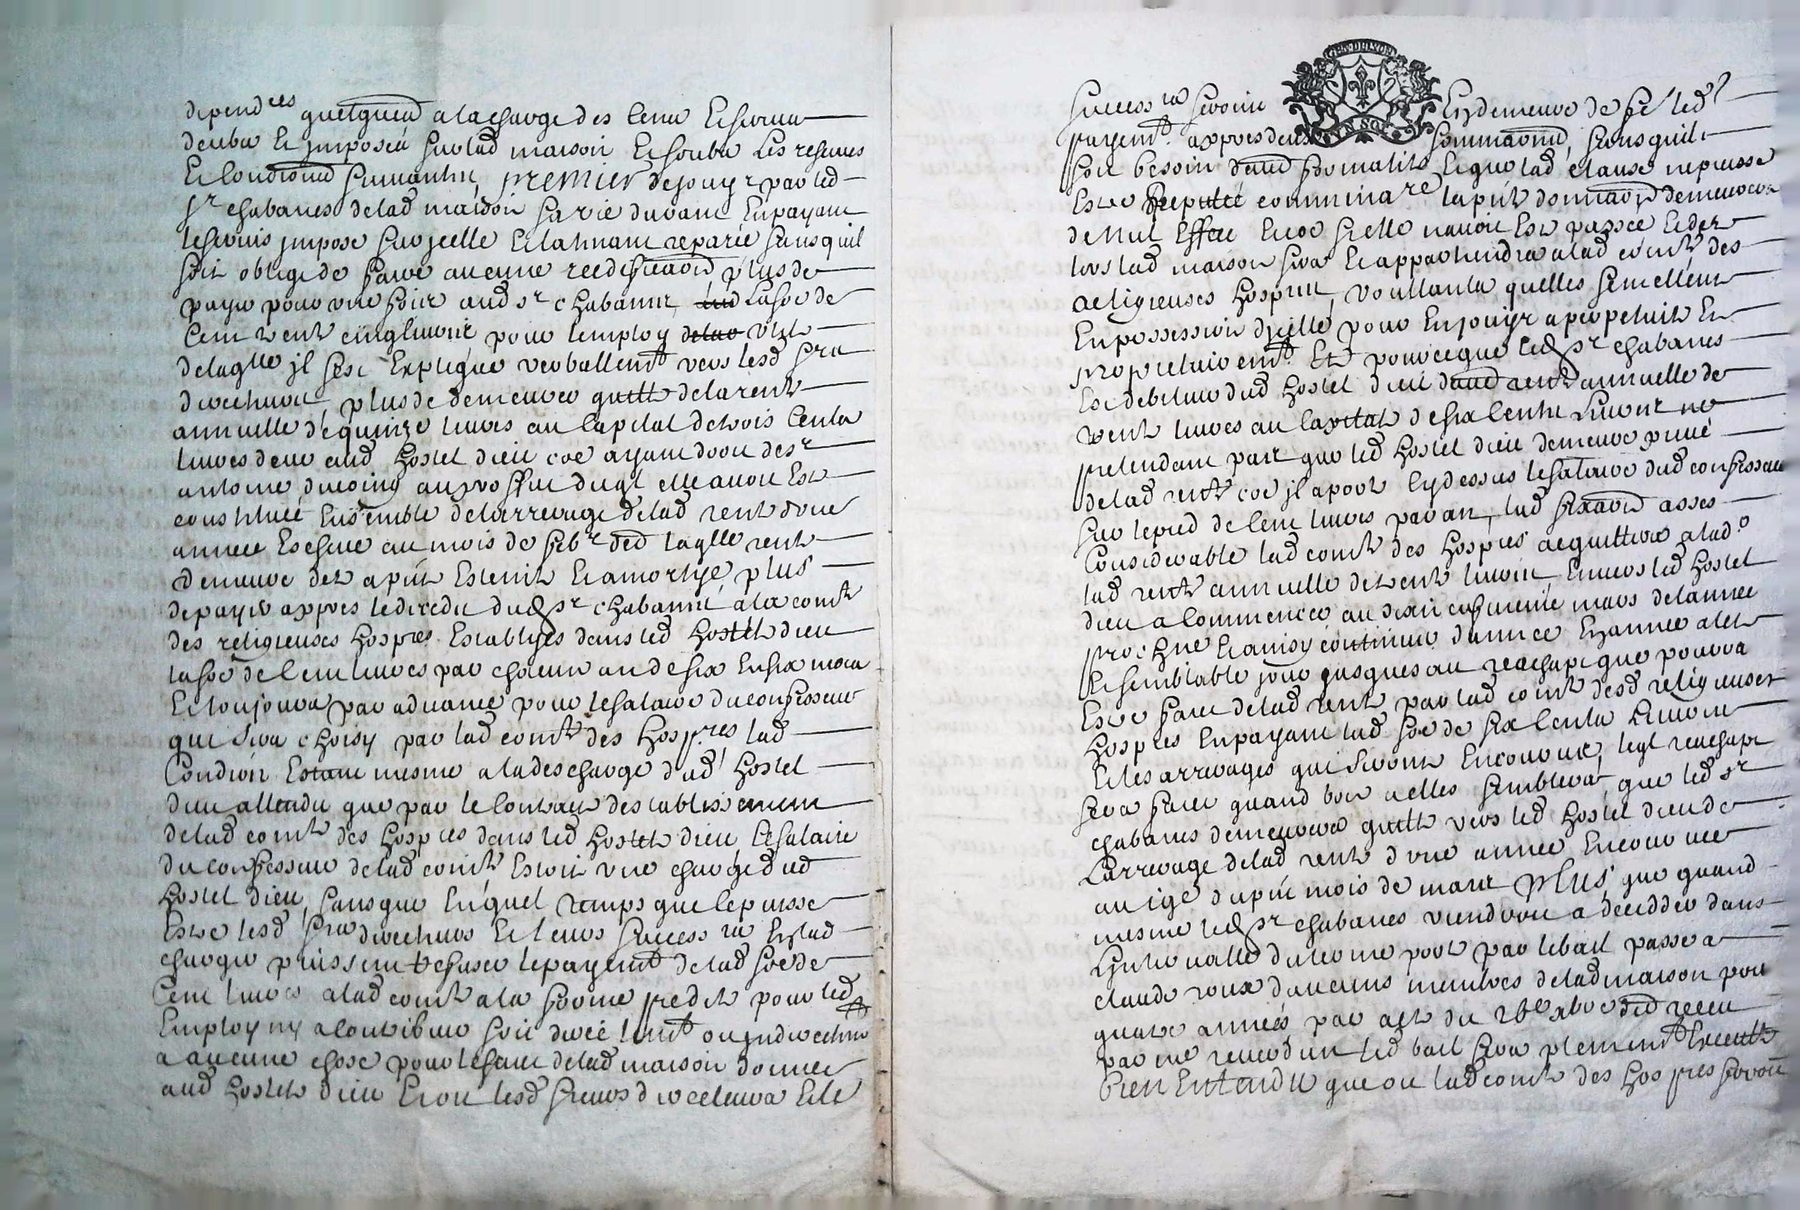 depend^ces quelqueu a la charge des cens Et servis
deubs Et imposés sur lad maison Et soubs Les reserves
Et conditions suivantes, premier de jouyr par led
s^r chabanes de lad maison sa vie durant En payant
les servis imposé sur jcelle Et la tenant reparée sans quil
soit obligé de faire aucune reediffication plus de
payer pour une fois aud s^r chabanes La so[mm]e de
Cent vent cinq livres pour lemploy utile
de laqlle jl sest Expliqué verballem^t vers lesd s^rs
directeurs, plus de demeurer quitte de la rente
annuelle de quinze livres au capital de trois Cents
livres deue aud hostel dieu coe ayant droit de s^r
antoine au proffit duql elle avoit Esté
constituée Ensemble de larrerage de lad rente dune
année Escheue au mois de feb^r d^er laqlle rente
demeure des a pñt Esteinte Et amortye, plus
de payer appres le decedz dud s^r chabanes a la com^té
des religieuses hosp^res Establyes dans led hostel dieu
la so[mm]e de Cent livres par chacun an de six En six mois
Et toujours par advance pour le salaire du confesseur
qui sera choisy par lad com^té des hosp^res lad
Condi[ti]on Estant mesme a la descharge dud hostel
dieu attendu que par le contrat destablissement
de lad com^té des hosp^res dans led hostel dieu, Le salaire
du confesseur de lad com^té Estoit une charge dud
hostel dieu, sans que En quel temps que ce puisse
Estre lesd s^rs directeurs Et leurs success^rs En lad
charge puissent refuser le payem^t de lad so[mm]e de
Cent livres a lad com^té a la forme predite pour led
Employ ny a contribuer soit directem^t ou indirectem^t
a aucune chose pour lesfait de lad maison donnée
aud hostel dieu Et ou lesd sieurs directeurs Et le
success^rs seroint En demeure de fe led
payem^t appres deux sommations, sans quil
soit besoin dautre formalité Et que lad clause ne puisse
Estre reputée comminat^re la pñte donnation demeurera
de Nul Effect Et coe si elle navoit Esté passée Et des
lors lad maison sera Et appartiendra a lad com^té des
religieuses hospres, voullant quelles sen mettent
En possession d'jcelle pour En jouyr a perpetuité En
proprietairem^t Et pour ce que led s^r chabanes
Est debiteur dud hostel dieu dautre rente annuelle de
trente livres au capital de six Cents livres ne
pretendant pas que led hostel dieu demeure privé
de lad rente coe jl a porté Cy dessus le salaire dud confesseur
sur le pied de Cent livres par an, lad fixation asses
Considerable lad com^té des hosp^res acquittera a lad^o
lad rente annuelle de trente livres Envers led hostel
dieu a commencer au mars de lannée
proch[ai]ne Et ainsy continuer dannée En année a tel
Et semblable jour jusques au reachapt que pourra
Estre fait de lad rente par lad com^té desd religieuses
hosp^res En payant lad so[mm]e de six Cents livres
Et les arrerages qui seront Encourus, leql reachapt
sera fait quand bon a elles semblera, que led s^r
chabanes demeurera quitte vers led hostel dieu de
Larrerage de lad rente dune année Encourue
au 19e du pñt mois de mars plus que quand
mesme led s^r chabanes viendroit a deceder dans
Lintervalle du terme porté par le bail passé a
claude roux daucuns membres de lad maison pour
quatre années par acte du d^er receu
par me led bail sera plenem^t Executé
bien Entendu que ou lad com^té des hosp^res seroit